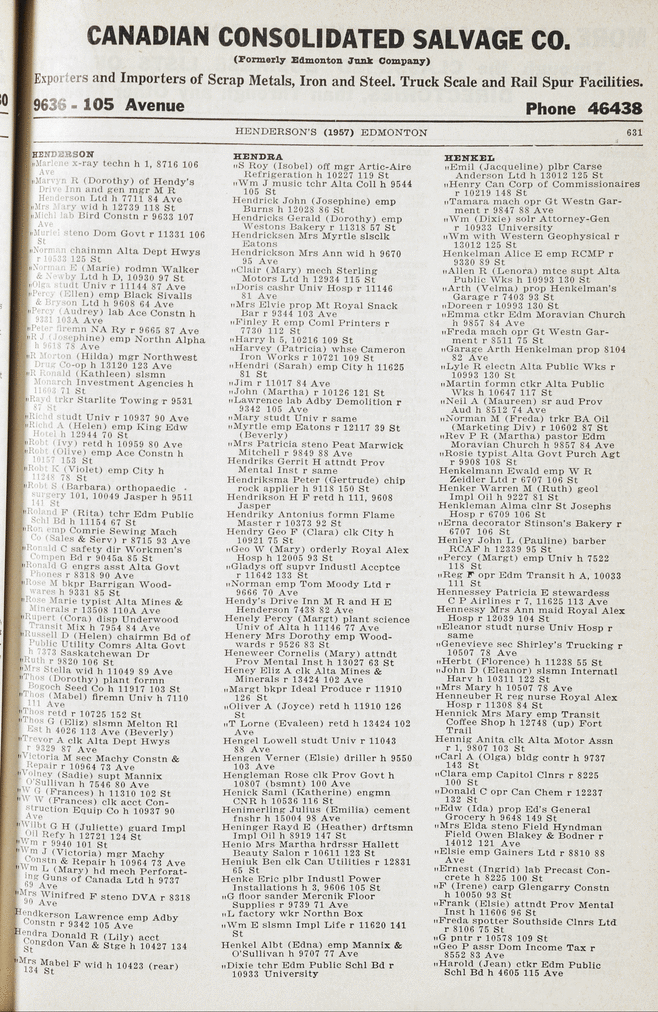 CANADIAN CONSOLIDATED SALVAGE CO.
(Formerly Edmonton Junk Company)
Exporters and Importers of Scrap Metals, Iron and Steel. Truck Scale and Rail Spur Facilities.
9636 - 105 Avenue Phone 46438
HENDERSON'S (1957) EDMONTON 631
HENDERSON
"Marlene x-ray techn h 1, 8716 106
Ave
"Marvyn R (Dorothy) of Hendy's
Drive Inn and gen mgr M R
Henderson Ltd h 7711 84 Ave
"Mrs Mary wid h 12739 118 St
"Michl lab Bird Constn r 9633 107
Ave
"Muriel steno Dom Govt r 11331 106
St
"Norman chainmn Alta Dept Hwys
r 10533 125 St
"Norman E (Marie) rodmn Walker
& Newby Ltd h D, 10930 97 St
"Olga studt Univ r 11144 87 Ave
"Percy (Ellen) emp Black Sivalls
& Bryson Ltd h 9608 64 Ave
"Percy (Audrey) lab Ace Constn h
9231 103A Ave
"Peter firemn NA Ry r 9665 87 Ave
"R J (Josephine) emp Northn Alpha
h 9618 78 Ave
"R Morton (Hilda) mgr Northwest
Drug Co-op h 13120 123 Ave
"R Ronald (Kathleen) slsmn
Monarch Investment Agencies h
11603 71 St
"Rayd trkr Starlite Towing r 9531
87 St
"Richd studt Univ r 10937 90 Ave
"Richd A (Helen) emp King Edw
Hotel h 12944 70 St
"Robt (Ivy) retd h 10959 80 Ave
"Robt (Olive) emp Ace Constn h
10157 153 St
"Robt K (Violet) emp City h
11248 78 St
"Robt S (Barbara) orthopaedic
surgery 101, 10049 Jasper h 9511
141 St
"Roland F (Rita) tchr Edm Public
Schl Bd h 11154 67 St
"Ron emp Comrie Sewing Mach
Co (Sales & Serv) r 8715 93 Ave
"Ronald C safety dir Workmen's
Compen Bd r 9045a 85 St
"Ronald G engrs asst Alta Govt
Phones r 8318 90 Ave
"Rose M bkpr Barrigan Wood-
wards h 9331 85 St
"Rose Marie typist Alta Mines &
Minerals r 13508 110A Ave
"Rupert (Cora) disp Underwood
Transit Mix h 7954 84 Ave
"Russell D (Helen) chairmn Bd of
Public Utility Comrs Alta Govt
h 7373 Saskatchewan Dr
"Ruth r 9820 106 St
"Mrs Stella wid h 11049 89 Ave
"Thos (Dorothy) plant formn
Bogoch Seed Co h 11917 103 St
"Thos (Mabel) firemn Univ h 7110
111 Ave
"Thos retd r 10725 152 St
"Thos G (Eliz) slsmn Melton Rl
Est h 4026 113 Ave (Beverly)
"Trevor A clk Alta Dept Hwys
r 9329 87 Ave
"Victoria M sec Machy Constn &
Repair r 10964 73 Ave
"Volney (Sadie) supt Mannix
O'Sullivan h 7546 80 Ave
"W G (Frances) h 11310 102 St
"W W (Frances) clk acct Con-
struction Equip Co h 10937 90
Ave
"Wilbt G H (Juliette) guard Impl
Oil Refy h 12721 124 St
"Wm r 9940 101 St
"Wm J (Victoria) mgr Machy
Constn & Repair h 10964 73 Ave
"Wm L (Mary) hd mech Perforat-
ing Guns of Canada Ltd h 9737
69 Ave
"Mrs Winifred F steno DVA r 8318
90 Ave
Hendkerson Lawrence emp Adby
Constn r 9342 105 Ave
Hendra Donald R (Lily) acct
Congdon Van & Stge h 10427 134
St
"Mrs Mabel F wid h 10423 (rear)
134 St
HENDRA
"S Roy (Isobel) off mgr Artic-Aire
Refrigeration h 10227 119 St
"Wm J music tchr Alta Coll h 9544
105 St
Hendrick John (Josephine) emp
Burns h 12028 86 St
Hendricks Gerald (Dorothy) emp
Westons Bakery r 11318 57 St
Hendricksen Mrs Myrtle slsclk
Eatons
Hendrickson Mrs Ann wid h 9670
95 Ave
"Clair (Mary) mech Sterling
Motors Ltd h 12934 115 St
"Doris cashr Univ Hosp r 11146
81 Ave
"Mrs Elvie prop Mt Royal Snack
Bar r 9344 103 Ave
"Finley R emp Coml Printers r
7730 112 St
"Harry h 5, 10216 109 St
"Harvey (Patricia) whse Cameron
Iron Works r 10721 109 St
"Hendri (Sarah) emp City h 11625
81 St
"Jim r 11017 84 Ave
"John (Martha) r 10126 121 St
"Lawrence lab Adby Demolition r
9342 105 Ave
"Mary studt Univ r same
"Myrtle emp Eatons r 12117 39 St
(Beverly)
"Mrs Patricia steno Peat Marwick
Mitchell r 9849 88 Ave
Hendriks Gerrit H attndt Provl
Mental Inst r same
Hendriksma Peter (Gertrude) chip
rock applier h 9118 150 St
Hendrikson H F retd h 111, 9608
Jasper
Hendriky Antonius formn Flame
Master r 10373 92 St
Hendry Geo F (Clara) clk City h
10921 75 St
"Geo W (Mary) orderly Royal Alex
Hosp h 12005 93 St
"Gladys off supvr Industl Accptce
r 11642 133 St
"Norman emp Tom Moody Ltd r
9666 70 Ave
Hendy's Drive Inn M R and H E
Henderson 7438 82 Ave
Henely Percy (Margt) plant science
Univ of Alta h 11146 77 Ave
Henery Mrs Dorothy emp Wood-
wards r 9526 83 St
Heneweer Cornelis (Mary) attndt
Prov Mental Inst h 13027 63 St
Heney Eliz A clk Alta Mines &
Minerals r 13424 102 Ave
"Margt bkpr Ideal Produce r 11910
126 St
"Oliver A (Joyce) retd h 11910 126
St
"T Lorne (Evaleen) retd h 13424 102
Ave
Hengel Lowell studt Univ r 11043
88 Ave
Hengen Verner (Elsie) driller h 9550
103 Ave
Hengleman Rose clk Prov Govt h
10807 (bsmnt) 100 Ave
Henick Saml (Katherine) engmn
CNR h 10536 116 St
Henimerling Julius (Emilia) cement
fnshr h 15004 98 Ave
Heninger Rayd E (Heather) drftsmn
Impl Oil h 8919 147 St
Henio Mrs Martha hrdrssr Hallett
Beauty Salon h 10611 123 St
Heniuk Ben elk Can Utilities r 12831
65 St
Henke Eric plbr Industl Power
Installations h 3, 9606 105 St
"G floor sander Mercnik Floor
Supplies r 9739 71 Ave
"L factory wkr Northn Box
"Wm E slsmn Impl Life r 11620 141
St
Henkel Albt (Edna) emp Mannix &
O'Sullivan h 9707 77 Ave
"Dixie tchr Edm Public Schl Bd r
10933 University
HENKEL
"Emil (Jacqueline) plbr Carse
Anderson Ltd h 13012 125 St
"Henry Can Corp of Commissionaires
r 10219 148 St
"Tamara mach opr Gt Westn Gar-
ment r 9847 88 Ave
"Wm (Dixie) solr Attorney-Gen
r 10933 University
"Wm with Western Geophysical r
13012 125 St
Henkelman Alice E emp RCMP r
9330 89 St
"Allen R (Lenora) mtce supt Alta
Public Wks h 10993 130 St
"Arth (Velma) prop Henkelman's
Garage r 7403 93 St
"Doreen r 10993 130 St
"Emma ctkr Edm Moravian Church
h 9857 84 Ave
"Freda mach opr Gt West Gar-
ment r 8511 75 St
"Garage Arth Henkelman prop 8104
82 Ave
"Lyle R electn Alta Public Wks r
10993 130 St
"Martin formn ctkr Alta Public
Wks h 10647 117 St
"Neil A (Maureen) sr aud Prov
Aud h 8512 74 Ave
"Norman M (Freda) trkr BA Oil
(Marketing Div) r 10602 87 St
"Rev P R (Martha) pastor Edm
Moravian Church h 9857 84 Ave
"Rosie typist Alta Govt Purch Agt
r 9908 108 St
Henkelmann Ewald emp W R
Zeidler Ltd r 6707 106 St
Henker Warren M (Ruth) geol
Impl Oil h 9227 81 St
Henkleman Alma clnr St Josephs
Hosp r 6709 106 St
"Erna decorator Stinson's Bakery r
6707 106 St
Henley John L (Pauline) barber
RCAF h 12339 95 St
"Percy (Margt) emp Univ h 7522
118 St
"Reg F opr Edm Transit h A, 10033
111 St
Hennessey Patricia E stewardess
C P Airlines r 7, 11625 113 Ave
Hennessy Mrs Ann maid Royal Alex
Hosp r 12039 104 St
"Eleanor studt nurse Univ Hosp r
same
"Genevieve sec Shirley's Trucking r
10507 78 Ave
"Herbt (Florence) h 11238 55 St
"John D (Eleanor) slsmn Internatl
Harv h 10311 122 St
"Mrs Mary h 10507 78 Ave
Henneuber R reg nurse Royal Alex
Hosp r 11308 84 St
Hennick Mrs Mary emp Transit
Coffee Shop h 12748 (up) Fort
Trail
Hennig Anita clk Alta Motor Assn
r 1, 9807 103 St
"Carl A (Olga) bldg contr h 9737
143 St
"Clara emp Capitol Clnrs r 8225
100 St
"Donald C opr Can Chem r 12237
132 St
"Edw (Ida) prop Ed's General
Grocery h 9648 149 St
"Mrs Elda steno Field Hyndman
Field Owen Blakey & Bodner r
14012 121 Ave
"Elsie emp Gainers Ltd r 8810 88
Ave
"Ernest (Ingrid) lab Precast Con-
crete h 8225 100 St
"F (Irene) carp Glengarry Constn
h 10050 93 St
"Frank (Elsie) attndt Prov Mental
Inst h 11606 96 St
"Freda spotter Southside Clnrs Ltd
r 8106 75 St
"G pntr r 10578 109 St
"Geo P assr Dom Income Tax r
8552 83 Ave
"Harold (Jean) ctkr Edm Public
Schl Bd h 4605 115 Ave